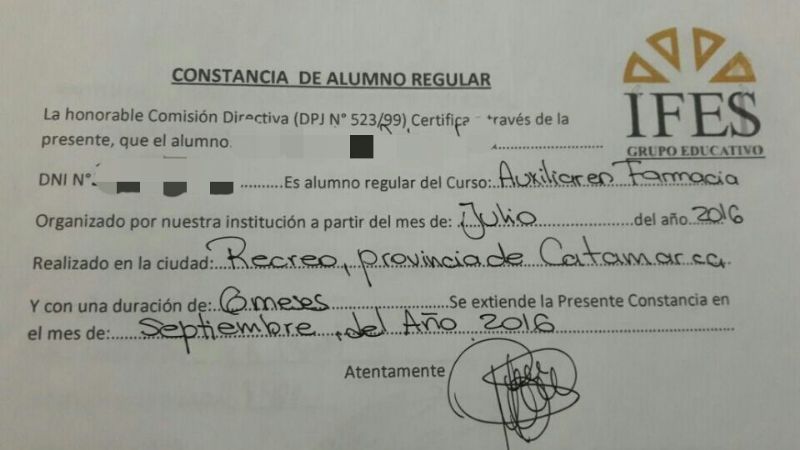 CONSTANCIA DE ALUMNO REGULAR
IFES
GRUPO EDUCATIVO
La honorable Comisión Directiva (DPJ N° 523/99) Certifica través de la
presente, que el alumno
DNI N° ..........Es alumno regular del Curso: Auxiliar en Farmacia
Organizado por nuestra institución a partir del mes de: Julio del año 2016
Realizado en la ciudad: Recreo, provincia de Catamarca
Y con una duración de: 6 meses Se extiende la Presente Constancia en
el mes de: Septiembre, del Año 2016
Atentamente